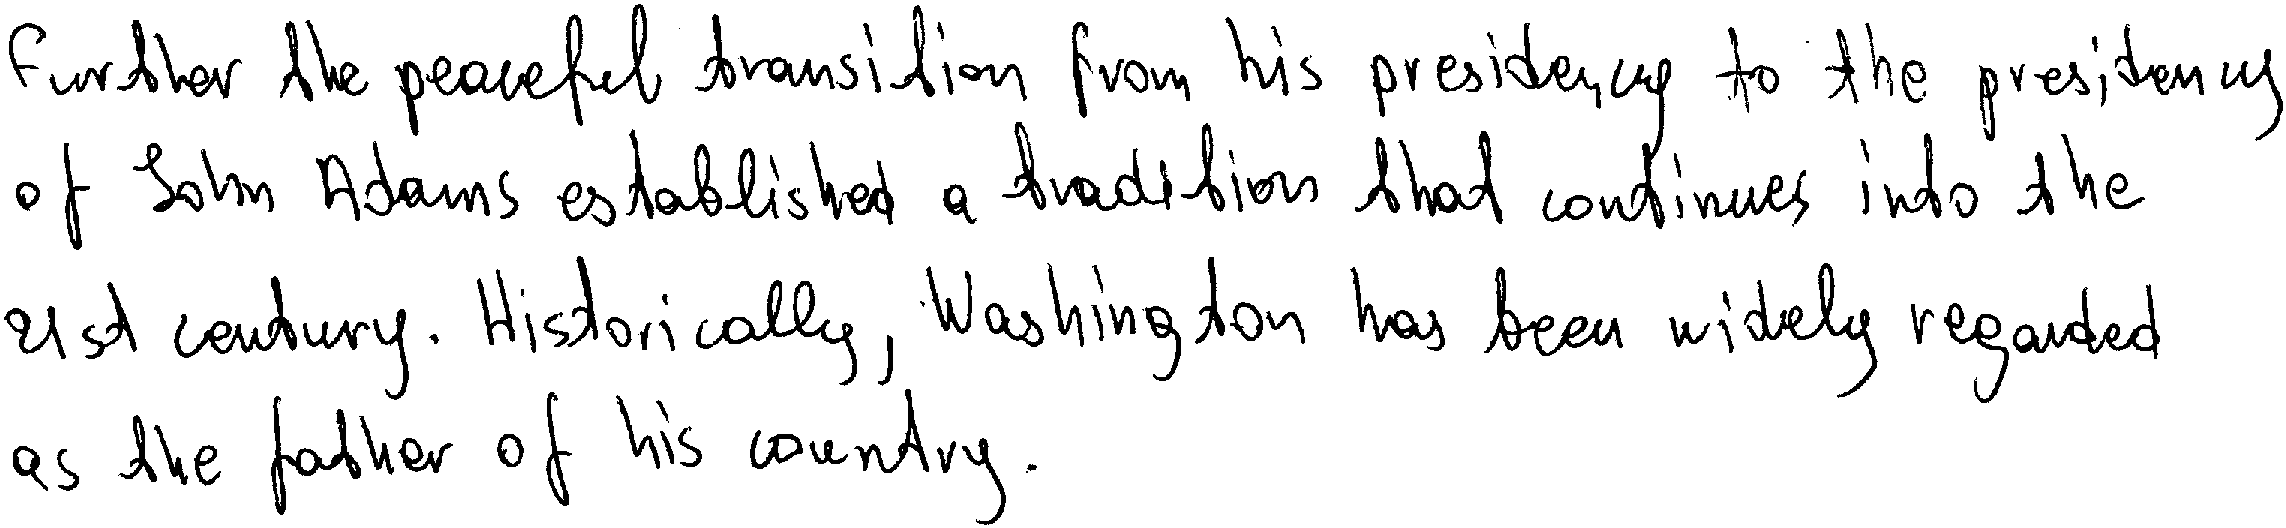 Further the peaceful transition from his presidency to the presidency
of John Adams established a tradition that continues into the
21st century. Historically, Washington has been widely regarded
as the father of his country.